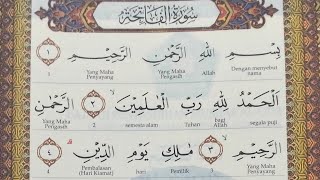 سُورَةُ الْفَاتِحَةِ
بِسْمِ اللّٰهِ الرَّحْمٰنِ الرَّحِيْمِ ١
Dengan menyebut nama Allah Yang Maha Pengasih Yang Maha Penyayang 1
اَلْحَمْدُ لِلّٰهِ رَبِّ الْعٰلَمِيْنَۙ ٢ الرَّحْمٰنِ
segala puji bagi Allah Tuhan semesta alam 2 Yang Maha Pengasih
الرَّحِيْمِۙ ٣ مٰلِكِ يَوْمِ الدِّيْنِۗ ٤
Yang Maha Penyayang 3 Pemilik hari Pembalasan (Hari Kiamat) 4